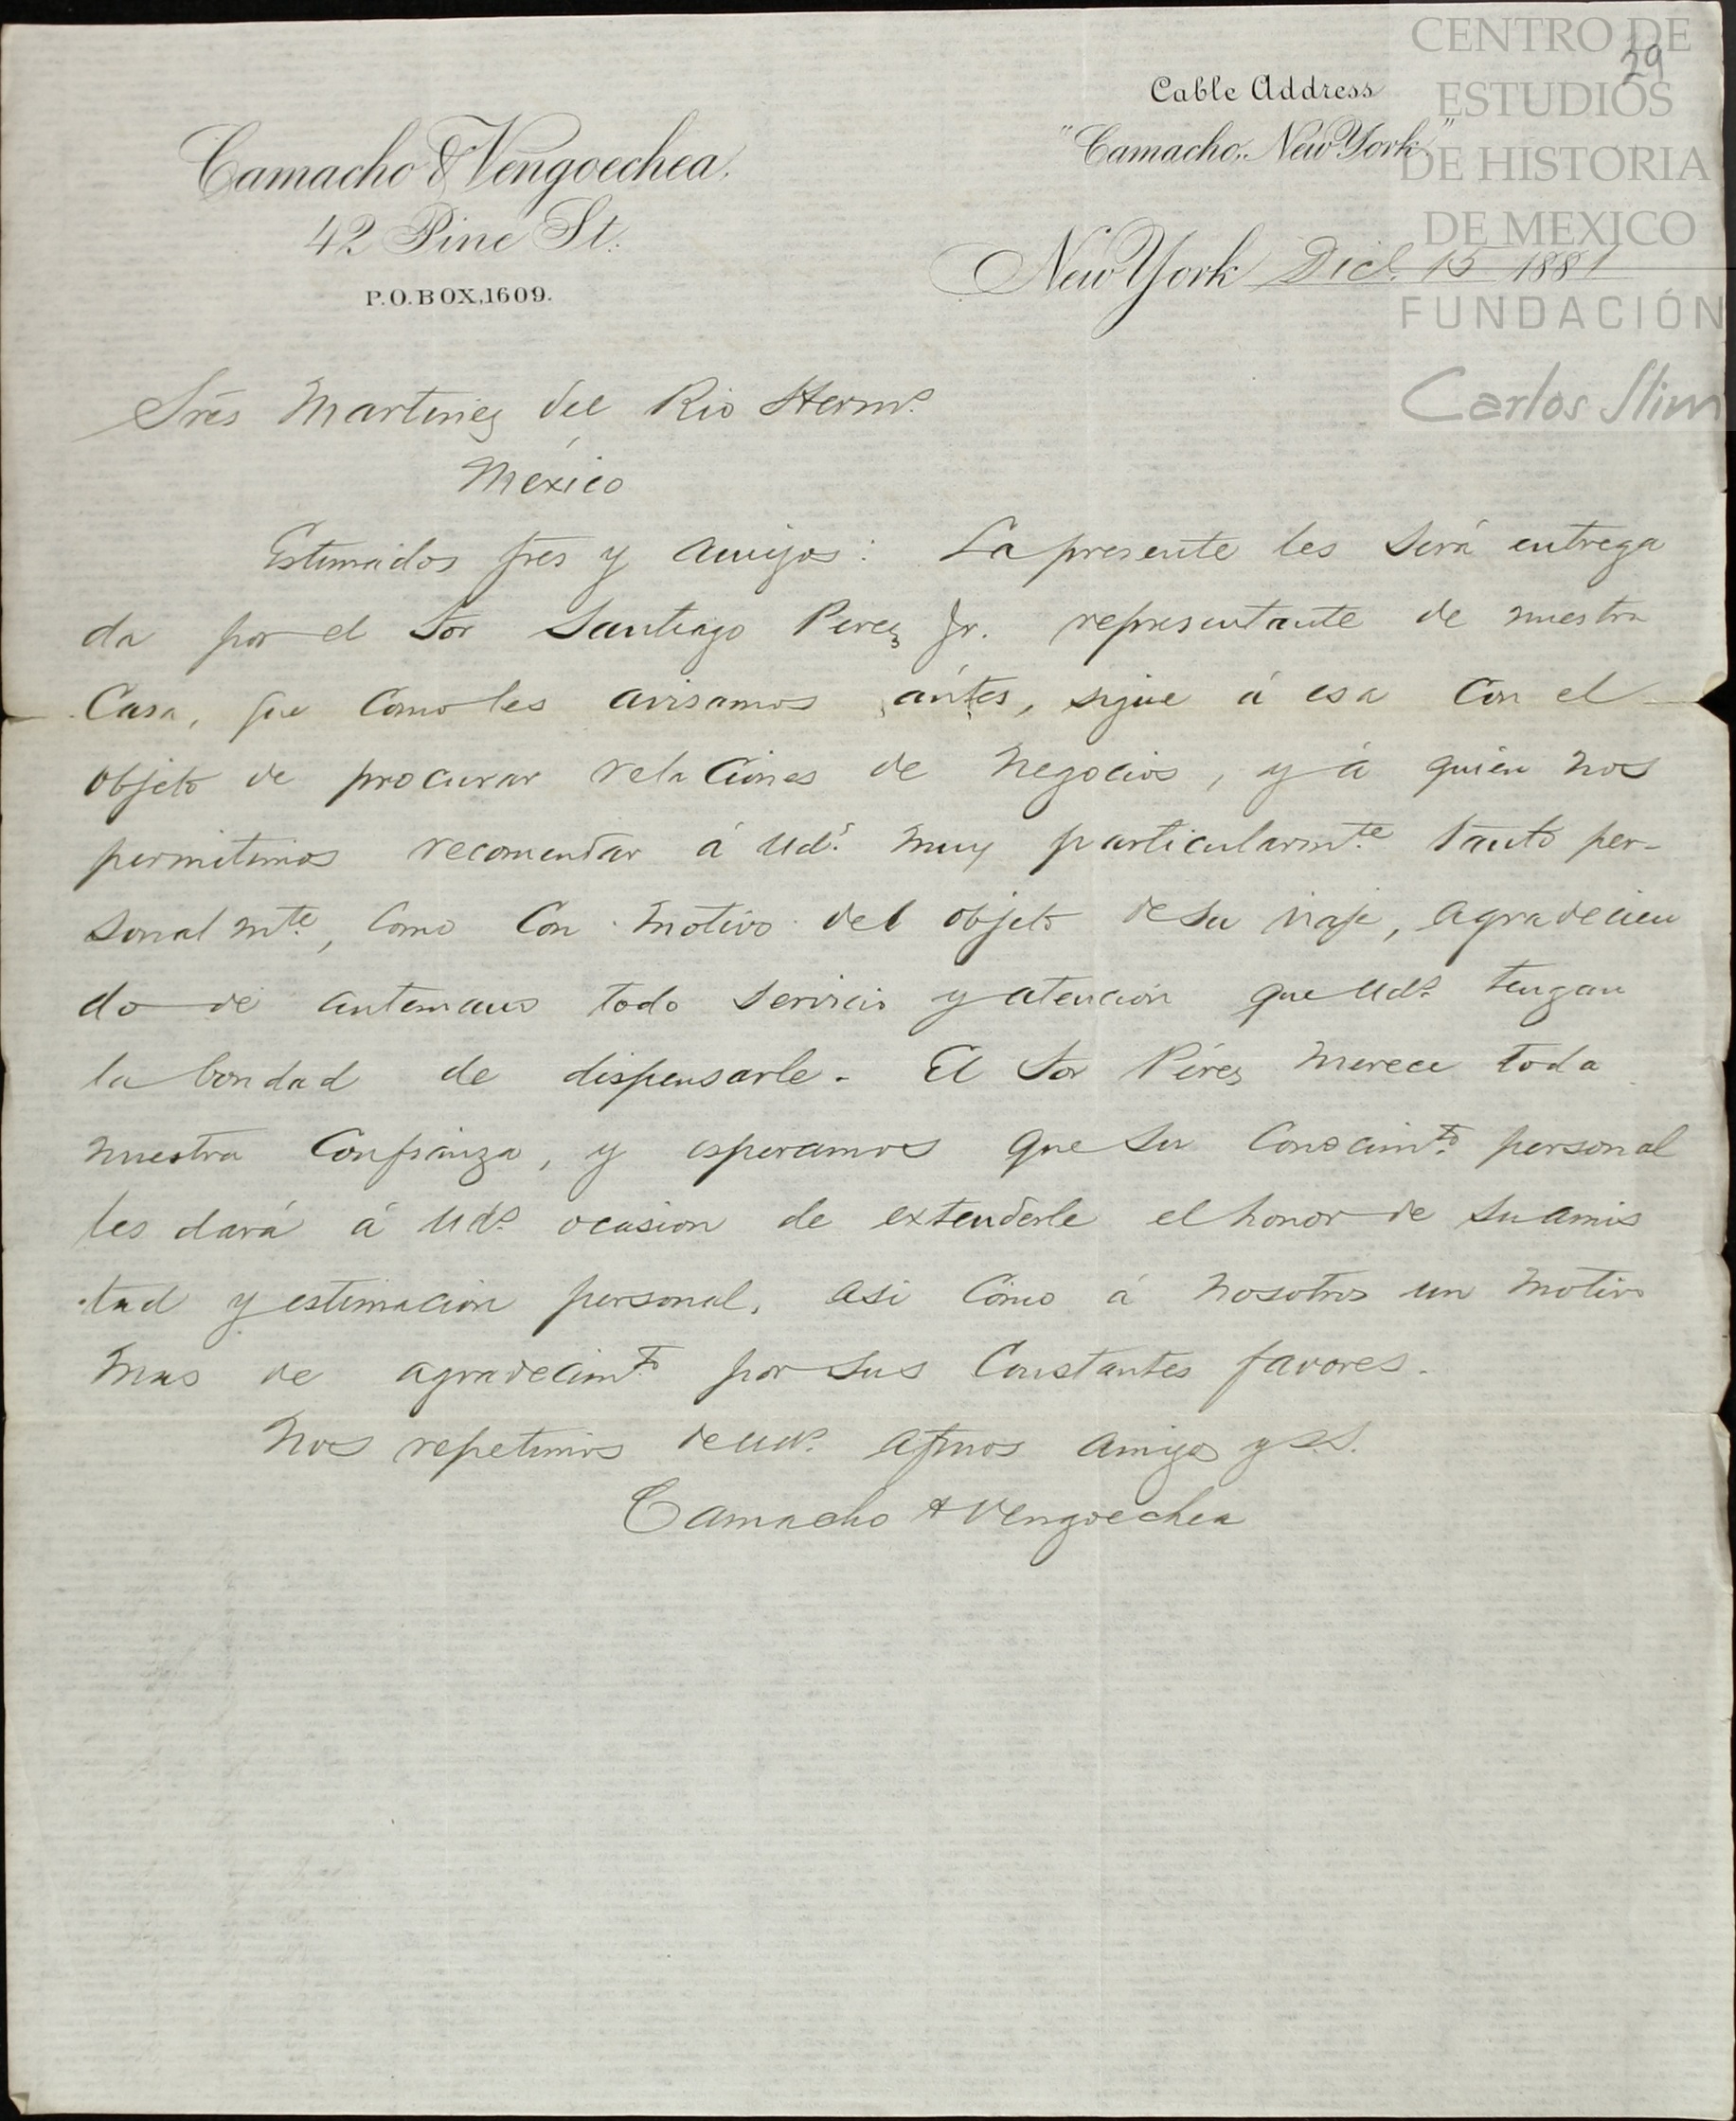 CENTRO DE
ESTUDIOS
DE HISTORIA
DE MEXICO
FUNDACIÓN
Carlos Slim
29
Cable Address
"Camacho, New York."
Camacho & Vengoechea.
42 Pine St.
P.O. BOX, 1609.
New York Dice. 15 1881
Sres Martinez del Rio Hermos.
México
Estimados sres y amigos: La presente les será entrega
da por el Sor Santiago Perez Jr. representante de nuestra
Casa, que como les avisamos ántes, sigue á esa con el
objeto de procurar relaciones de negocios, y á quién nos
permitimos recomendar á Uds. muy particularmte. tanto per-
sonalmte, como con motivo del objeto de su viaje, agradecien
do de antemano todo servicio y atención que Uds. tengan
la bondad de dispensarle. El Sor Pérez merece toda
nuestra confianza, y esperamos que su conocimto. personal
les dará á Uds. ocasion de extenderle el honor de su amis
tad y estimacion personal, asi como á nosotros un motivo
mas de agradecimto. por sus constantes favores.
Nos repetimos de Uds. afmos amigos y S.S.
Camacho & Vengoechea